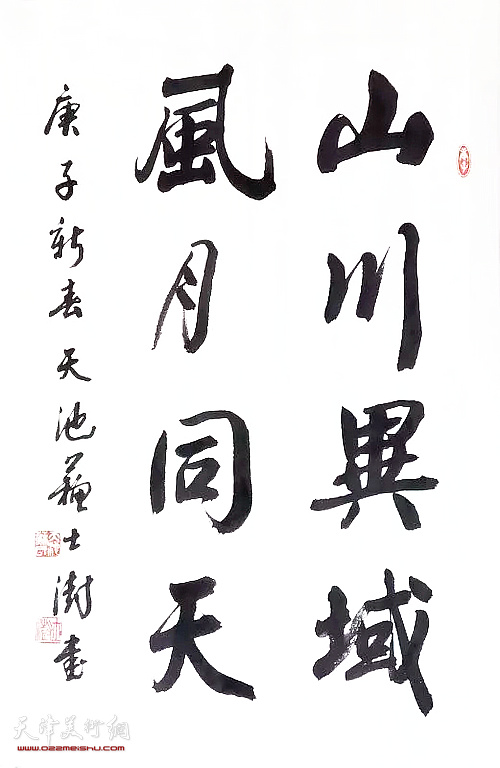 山川異域
風月同天
庚子新春天池蘇士澍書
天津美術網
www.022meishu.com